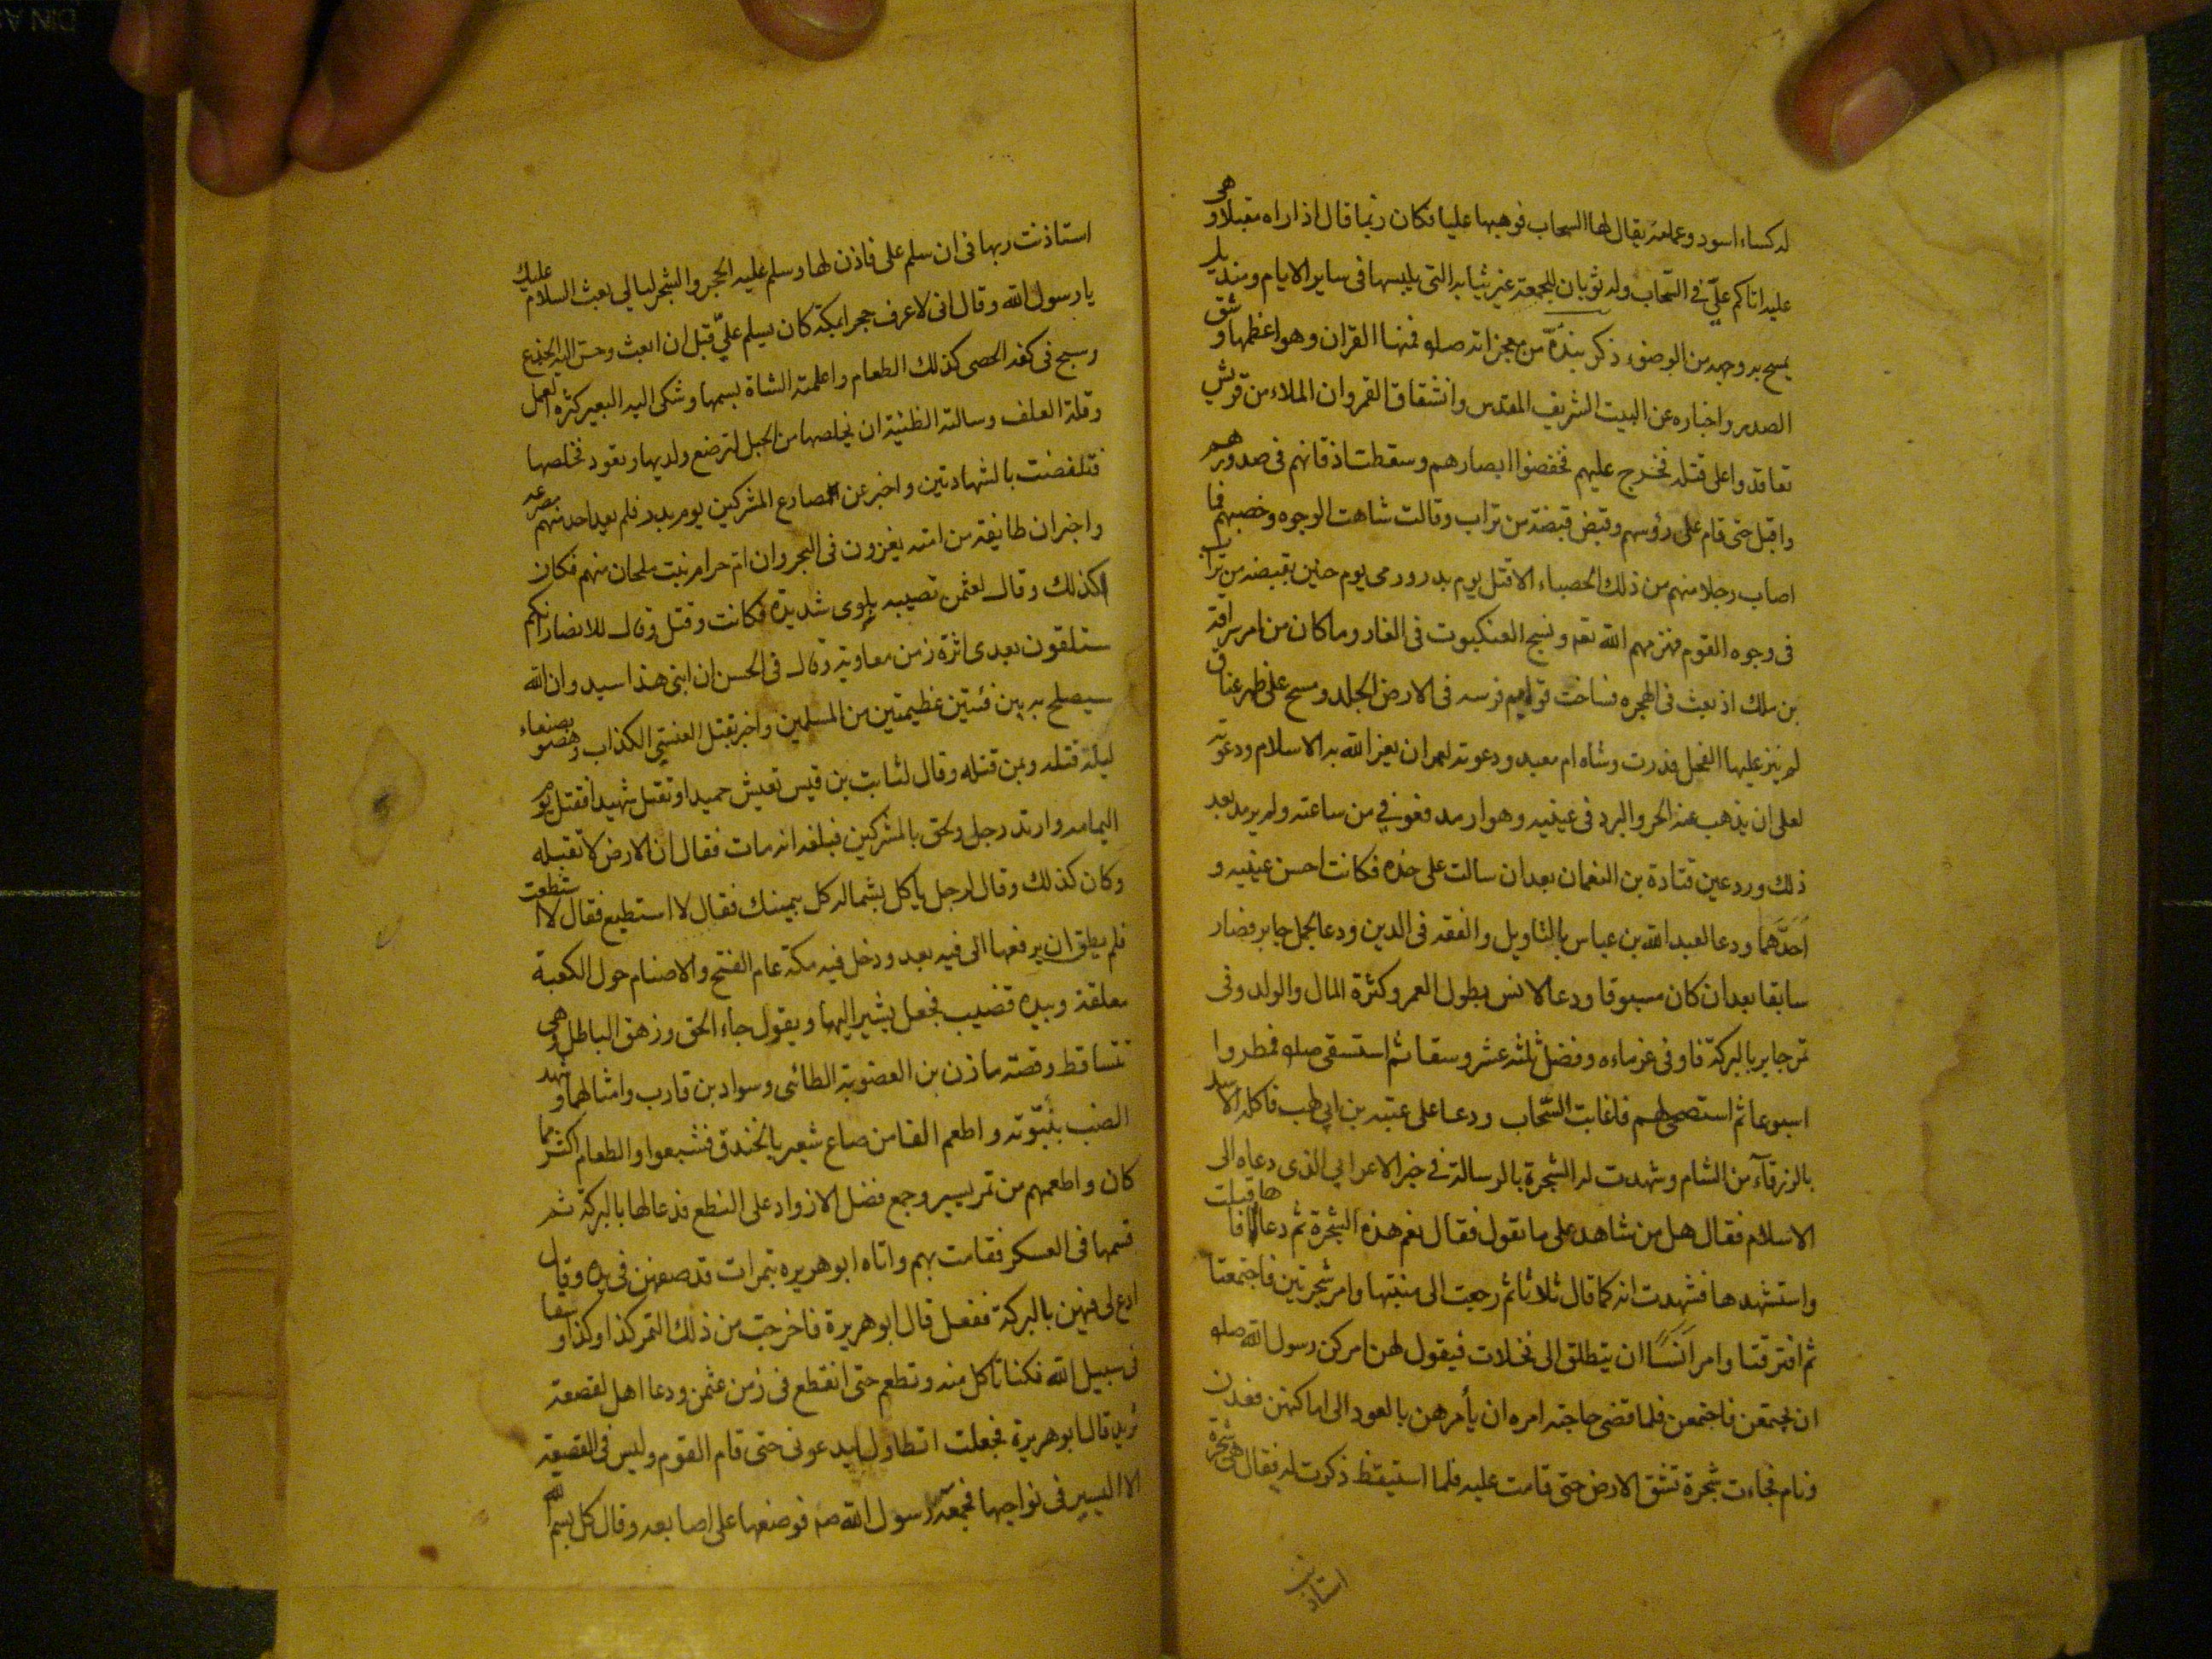 له كساء اسود وعمامة يقال لها السحاب فوهبها عليا فكان ربما قال اذا راه مقبلا وهى
عليه اتاكم علىّ فى السحاب وله ثوبان للجمعة غير ثيابه التى يلبسها فى ساير الايام ومنديل
يمسح به وجهه من الوضوء ذكر نبذة من معجزاته صلوا فمنها القران وهو اعظمها وشق
الصدر واخباره عن البيت الشريف المقدس وانشقاق القمر وان الملاء من قريش
تعاقدوا على قتله فخرج عليهم فخفضوا ابصارهم وسقطت اذقانهم فى صدورهم
واقبل حتى قام على رؤسهم وقبض قبضة من تراب وقالت شاهت الوجوه وخصبهم فما
اصاب رجلا منهم من ذلك الحصباء الا قتل يوم بدر ورمى يوم حنين بقبضه من تراب
فى وجوه القوم فهزمهم الله تعم ونسج العنكبوت فى الغار وما كان من امر سراقة
بن ملك اذ بعث فى الهجره فساخت قوايم فرسه فى الارض الجلد ومسح على ظهر عناق
لم ينز عليها الفحل فدرت وشاه ام معبد ودعوته لعمر ان يعز الله به الاسلام ودعوته
لعلى ان يذهب عنه الحر والبرد فى عينيه وهو ارمد فعوفى من ساعته ولم يرمد بعد
ذلك ورد عين قتادة بن النعمان بعد ان سالت على خده فكانت احسن عينيه و
احدّهما ودعا لعبد الله بن عباس بالتاويل والفقه فى الدين ودعا لجمل جابر فصار
سابقا بعد ان كان مسبوقا ودعا لانس بطول العمر وكثرة المال والولد وفى
تمر جابر بالبركة فاوفى غرماءه وفضل ثلثه عشر وسقا ثم استسقى صلو فمطروا
اسبوعا ثم استصحى لهم فانجابت السّحاب ودعا على عتبه بن ابى لهب فاكله الاسد
بالزرقآء من الشام وشهدت له الشجرة بالرسالة فى خبر الاعرابى الذى دعاه الى
الاسلام فقال هل من شاهد على ما تقول فقال نعم هذه الشجرة ثم دعاها فاقبلت
واستشهدها فشهدت انه كما قال ثلاثا ثم رجعت الى منبتها وامر شجرتين فاجتمعتا
ثم افترقتا وامر انسًا ان ينطلق الى نخلات فيقول لهن امركن رسول الله صلو
ان يجتمعن فاجتمعن فلما قضى حاجته امره ان يأمرهن بالعود الى اماكنهن فعدن
ونام فجاءت شجرة تشق الارض حتى قامت عليه فلما استيقظ ذكرت له فقال هى شجرة
استاذنت
استاذنت ربها فى ان سلم على فاذن لها وسلم عليه الحجر والشجر ليالى بعث السلام عليك
يا رسول الله وقال انى لاعرف حجرا بمكة كان يسلم علىّ قبل ان ابعث وحن اليه الجذع
وسبح فى كفه الحصى كذلك الطعام واعلمته الشاة بسمها وشكى اليه البعير كثره العمل
وقلة العلف وسالته الظبية ان يخلصها من الحبل لترضع ولديها وتعود فخلصها
فتلفضت بالشهادتين واخبر عن مصارع المشركين يوم بدر فلم يعد احد منهم مصرعه
واخبر ان طايفة من امته يغزون فى البحر وان ام حرام بنت ملحان منهم فكان
كذلك وقال لعثمن تصيبه بلوى شديدة فكانت وقتل وقال للانصار انكم
ستلقون بعدى اثرة زمن معاويه وقال فى الحسن ان ابنى هذا سيد وان الله
سيصلح به بين فئتين عظيمتين من المسلمين واخبر بقتل العنسى الكذاب وهو بصنعاء
ليلة قتله وبمن قتله وقال لثابت بن قيس تعيش حميدا وتقتل شهيدا فقتل يوم
اليمامه وارتد رجل ولحق بالمشركين فبلغه انه مات فقال ان الارض لا تقبله
وكان كذلك وقال لرجل يأكل بشماله كل بيمينك فقال لا استطيع فقال لا استطعت
فلم يطق ان يرفعها الى فيه بعد ودخل فيه مكة عام الفتح والاصنام حول الكعبة
معلقة وبيده قضيب فجعل يشير اليها ويقول جاء الحق وزهق الباطل وهى
تتساقط وقصة مازن بن العضوبة الطائى وسواد بن قارب وامثالهما وشهد
الضب بنبوّته واطعم الفا من صاع شعير بالخندق فشبعوا والطعام اكثر مما
كان واطعمهم من تمر يسير وجمع فضل الازواد على النطع فدعا لها بالبركة ثم
قسمها فى العسكر فقامت بهم واتاه ابو هريره بتمرات قد صفهن فى يده وقال
ادع لى فيهن بالبركة ففعل قال ابو هريرة فاخرجت من ذلك التمر كذا وكذا وسقا
فى سبيل الله فكنا نأكل منه ونطعم حتى انقطع فى زمن عثمن ودعا اهل لقصعة
ثريد قال ابو هريرة فجعلت اتطاول ليدعونى حتى قام القوم وليس فى القصعة
الا اليسير فى نواحيها فجمعه رسول الله صم فوضعها على اصابعه وقال كل بسم الله